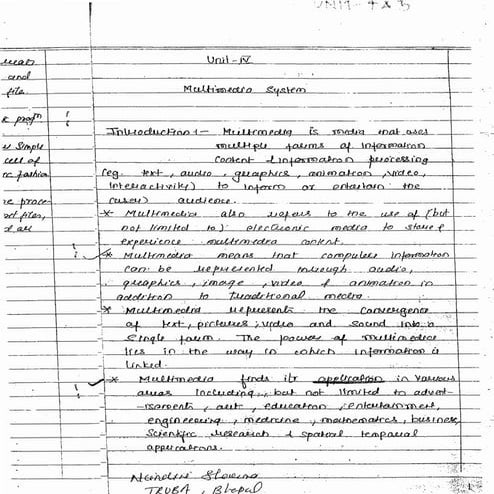 UNIT - 4 & 5
Unit-IV
Multimedia System
and
file.
Introduction :- Multimedia is media that uses
multiple forms of Information
Content & Information processing
(eg. text, audio, graphics, animation, video,
Interactivity) to inform or entertain the
(user) audience.
* Multimedia also refers to the use of (but
not limited to) electronic media to store &
experience multimedia content.
* Multimedia means that computer information
can be represented through audio,
graphics, image, video & animation in
addition to traditional media.
* Multimedia represents the convergence
of text, pictures, video and sound into a
single form. The power of multimedia
lies in the way in which information is
linked.
* Multimedia finds its application in various
areas including, but not limited to advert-
isements, art, education, entertainment,
engineering, medicine, mathematics, business,
Scientific research & spatial temporal
applications.
TRUBA, Bhopal